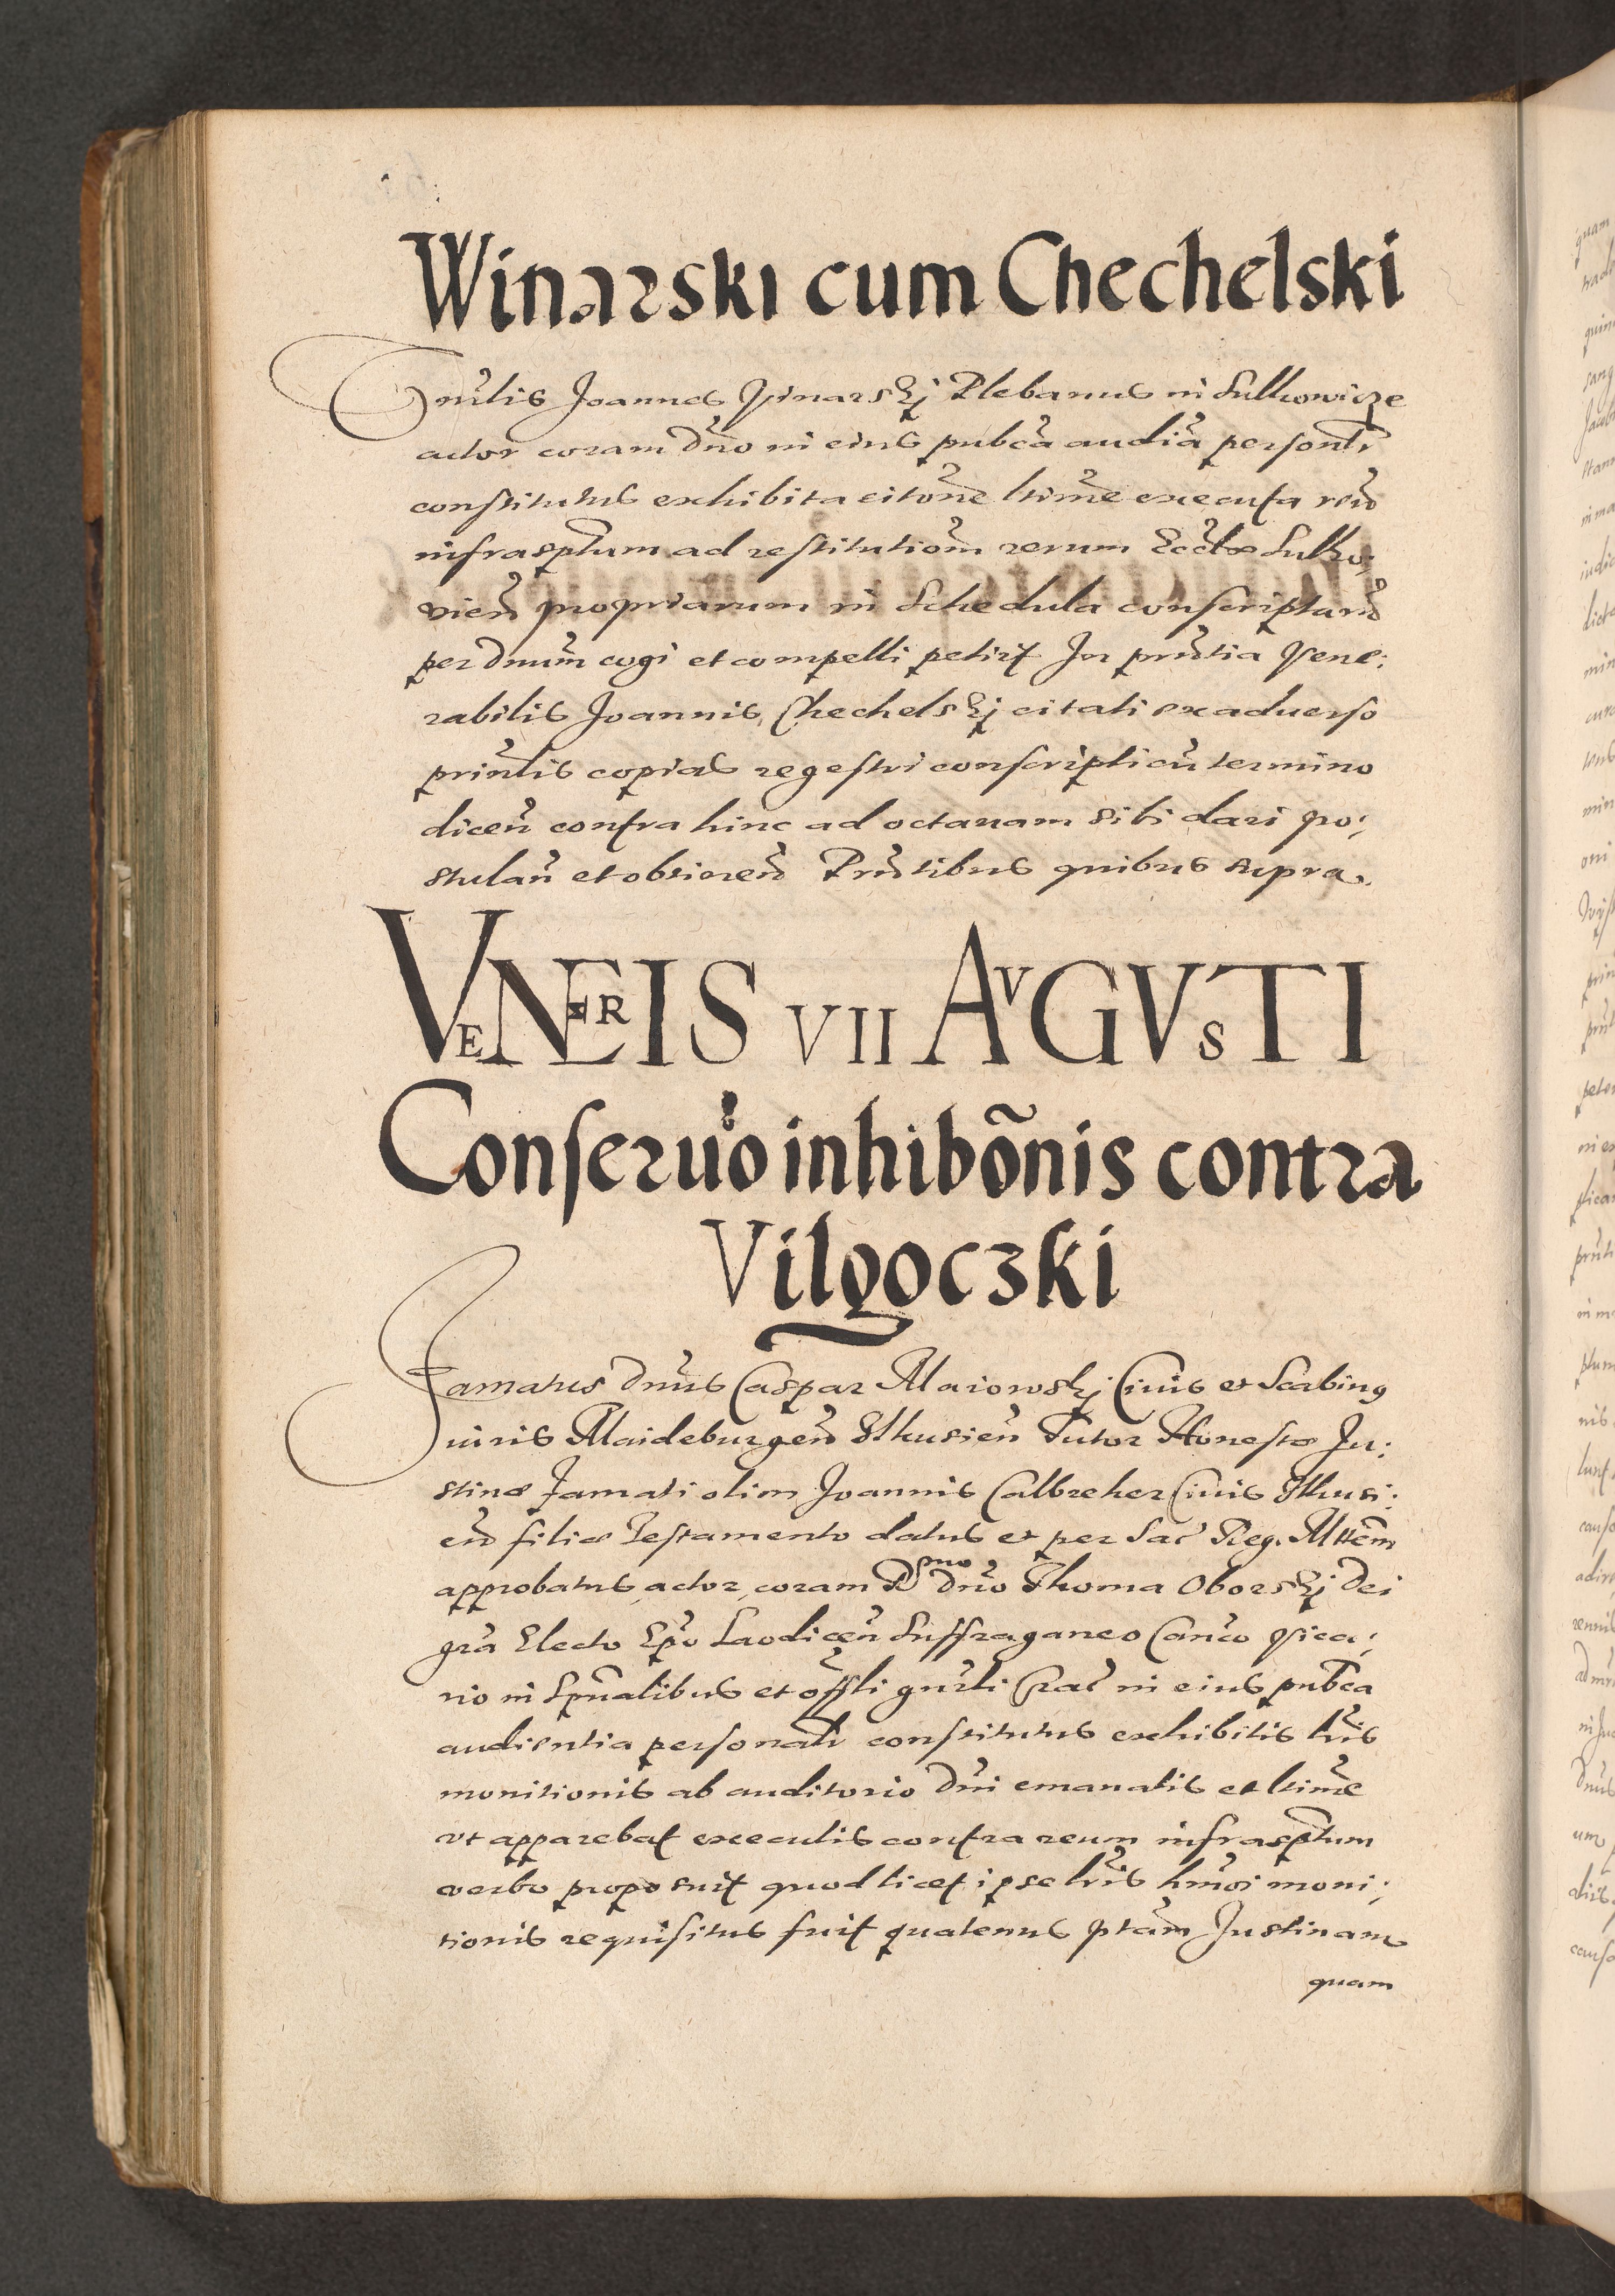 Winarski cum Chechelski
Onrlis Joannes Winarskj Plebanus in Sulkowicze
actor coram dno in eius pubca audia personlr
constitutus exhibita citone ltime executa reu
infrasptum ad restitutiom rerum Eccliæ Sulko:
vien propriarum in Schedula conscriptaru
per dnum cogi et compelli petiit In prntia Vene:
rabilis Joannis Chechelskj citati ex aduerso
principlis copias regestri conscripti cu termino
dicen contra hinc ad octauam sibi dari po:
stulan et obtinen Prntibus quibus supra.
VENERIS VII AVGVSTI
Conseruo inhibonis contra
Vilgoczki
Famatus dnus Caspar Maiowskj Ciuis et Scabing
iuris Maideburgen Ilkusien Tutor Honestæ Ju:
stinæ famati olim Joannis Calbreher Ciuis Ilkusi:
en filiæ Testamento datus et per Sac Reg. Mttem
approbatus actor coram R mo dno Thoma Oborskj Dei
gra Electo Epo Laodicen Suffraganeo Canco Vica:
rio in Spualibus et offli gnrli Crac in eius pubca
audientia personalr constitutus exhibitis lris
monitionis ab auditorio dni emanatis et ltime
vt apparebat executis contra reum infrasptum
verbo proposuit quod licet ipse lris hmoi moni:
tionis requisitus fuit quatenus ptam Justinam
quam